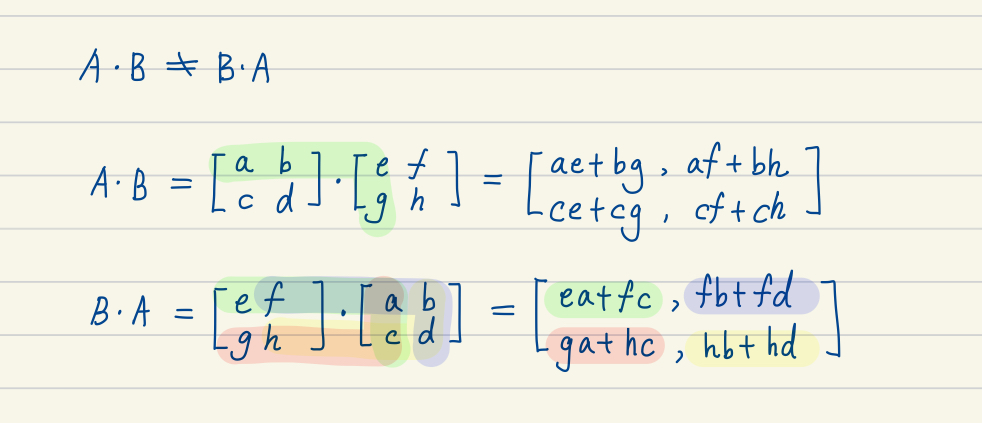 A·B ≠ B·A
A·B = [a b c d]·[e f g h] = [ae+bg, af+bh
ce+cg, cf+ch]
B·A = [e f g h]·[a b c d] = [ea+fc, fb+fd
ga+hc, hb+hd]